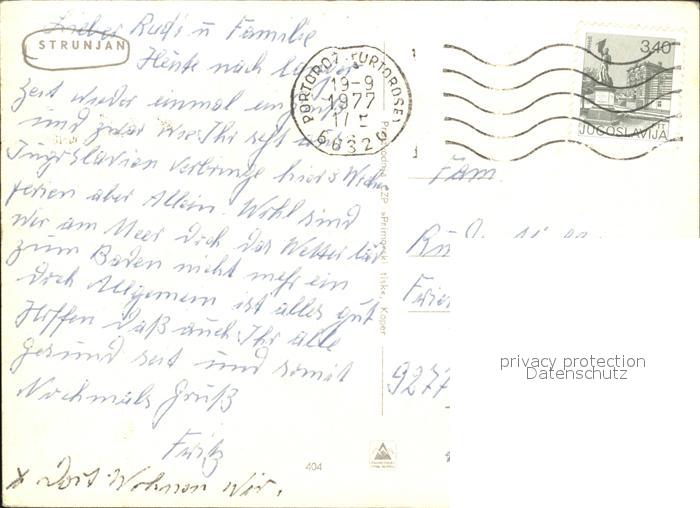 STRUNJAN
Lieber Rudi u Familie
Heute nach langer
Zeit wieder einmal ein
und zwar wie Ihr seht aus
Jugoslavien verbringe hier 3 Woche
ferien aber Allein. Wohl sind
wir am Meer doch das Wetter
zum Baden nicht mehr ein
doch Allgemein ist alles gut
Hoffen daß auch Ihr alle
gesund seit und somit
Nochmals Gruß
Fritz
x Dort Wohnen Wir.
404
PORTOROŽ PORTOROSE
19-9
1977
17
66320
3,40
JUGOSLAVIJA
»Primorski tisk«, Koper
Fam.
927
privacy protection
Datenschutz